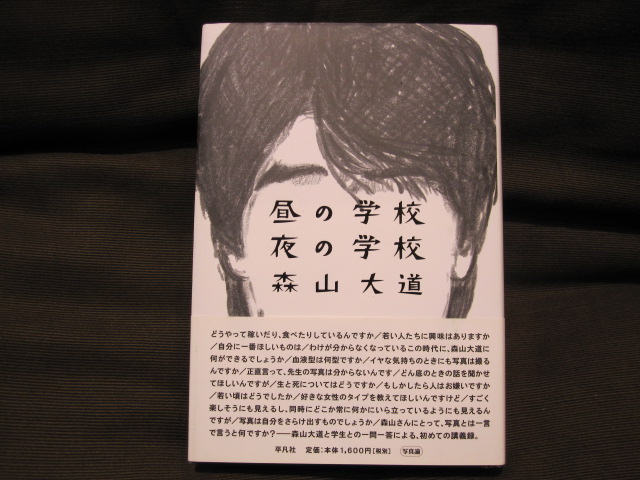 昼の学校
夜の学校
森山大道
どうやって稼いだり、食べたりしているんですか/若い人たちに興味はありますか
/自分に一番ほしいものは/わけが分からなくなっているこの時代に、森山大道に
何ができるでしょうか/血液型は何型ですか/イヤな気持ちのときにも写真は撮る
んですか/正直言って、先生の写真は分からないんです/どん底のときの話を聞かせ
てほしいんですが/生と死についてはどうですか/もしかしたら人はお嫌いですか
/若い頃はどうでしたか/好きな女性のタイプを教えてほしいんですけど/すごく
楽しそうにも見えるし、同時にどこか常に何かにいら立っているようにも見えるん
ですが/写真は自分をさらけ出すものでしょうか/森山さんにとって、写真とは一言
で言うと何ですか?——森山大道と学生との一問一答による、初めての講義録。
平凡社 定価:本体1,600円[税別] 写真論